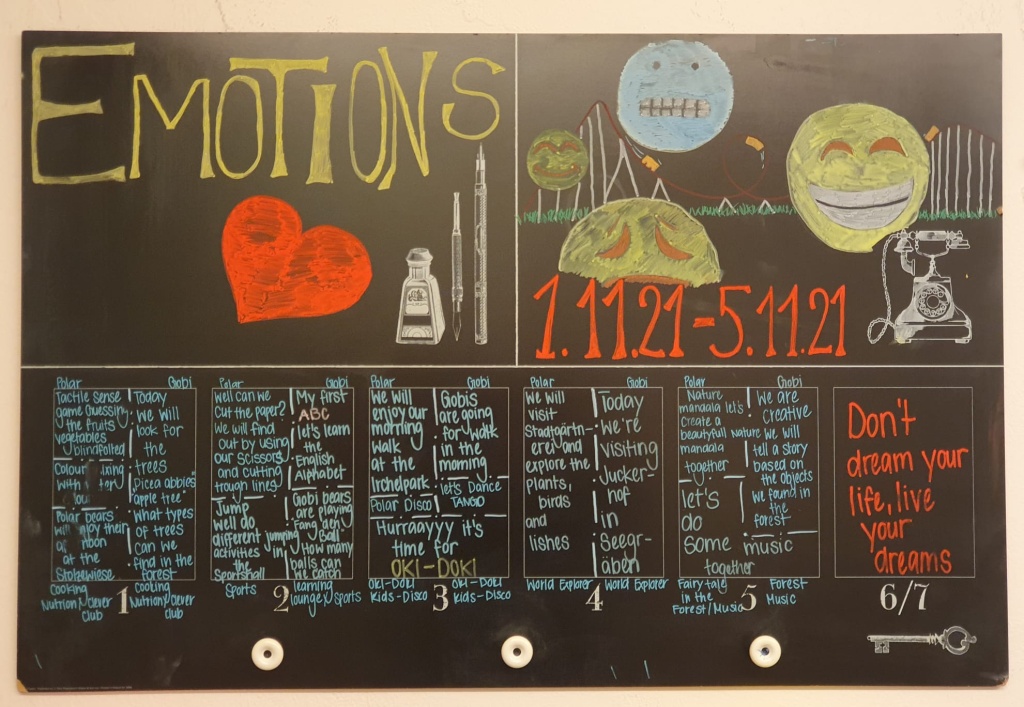 EMOTIONS
1.11.21-5.11.21
Polar Gobi
Tactile sense
game Guessing
the fruits
vegetables
blindfolted
Colour
with
Polar bears
will enjoy their
at the
Stolzewiese
Today
we will
look for
the
trees
"Picea abbies"
"apple tree"
what types
of trees
can we
find in the
forest
Cooking
Nutrion/Clever
club
Cooking
Nutrion/Clever
club
1
Polar Gobi
Well can we
cut the paper?
We will find
out by using
our scissors
and cutting
trough lines
Jump
well do
different jumping
activities in
the
Sportshall
My first
ABC
let's learn
the
English
Alphabet
Gobi bears
are playing
Fang den
Ball
How many
balls can
we catch
Sports
learning
lounge/Sports
2
Polar Gobi
We will
enjoy our
morning
walk
at the
Irchelpark
Polar Disco
Gobis
are going
for walk
in the
morning
let's Dance
TANGO
Hurraayyy it's
time for
OKI-DOKI
OKI-DOKI
Kids-Disco
OKI-DOKI
Kids-Disco
3
Polar Gobi
We will
visit
Stadtgärtn-
erei and
explore the
plants,
birds
and
fishes
Today
we're
visiting
Jucker-
hof
in
Seegr-
äben
World Explorer World Explorer
4
Polar Gobi
Nature
mandala let's
create a
beautyfull Nature
mandala
together
let's
do
some music
together
We are
creative
We will
tell a story
based on
the objects
we found in
the
forest
Fairy tale
in the
Forest/Music
Forest
Music
5
Don't
dream your
life, live
your
dreams
6/7